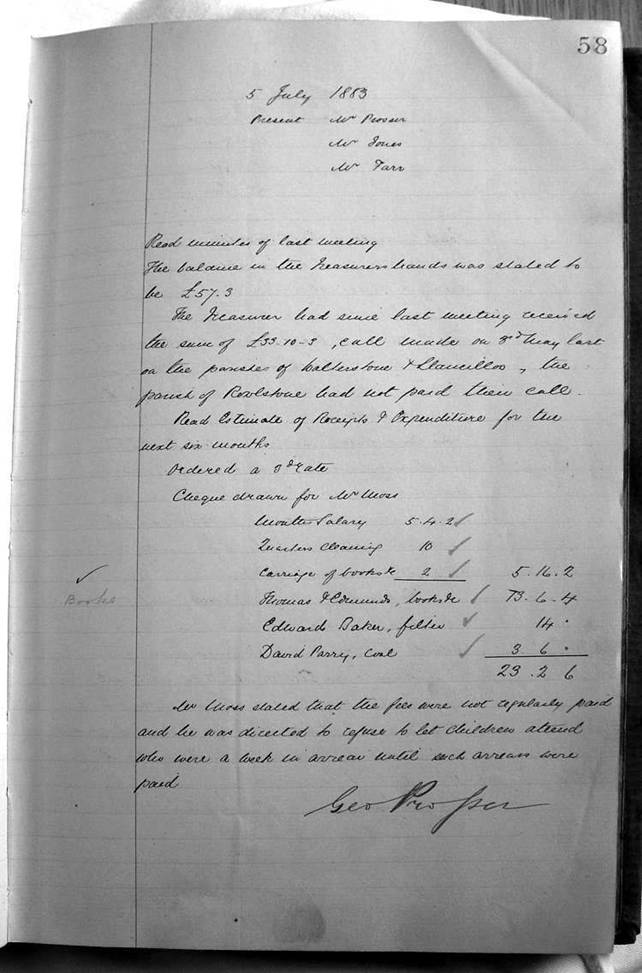 58
5 July 1883
Present Mr Prosser
Mr Jones
Mr Farr
Read minutes of last meeting
The balance in the Treasurers hands was stated to
be £57.3
The Treasurer had since last meeting received
the sum of £33-10-3, call made on 3d May last
on the parishes of Walterstone & Llancillo, the
parish of Rowlstone had not paid their call.
Read Estimate of Receipts & Expenditure for the
next six months
Ordered a 3d rate
Cheque drawn for Mr Moss
Months Salary 5.4.2
Quarters Cleaning 10
Carriage of books &c 2 5.16.2
Books
Thomas & Edmunds, books &c 13.6.4
Edward Baker, filter 14 .
David Parry, Coal 3 6 .
23.2 6
Mr Moss stated that the fees were not regularly paid
and he was directed to refuse to let children attend
who were a week in arrear until such arrears were
paid
Geo Prosser